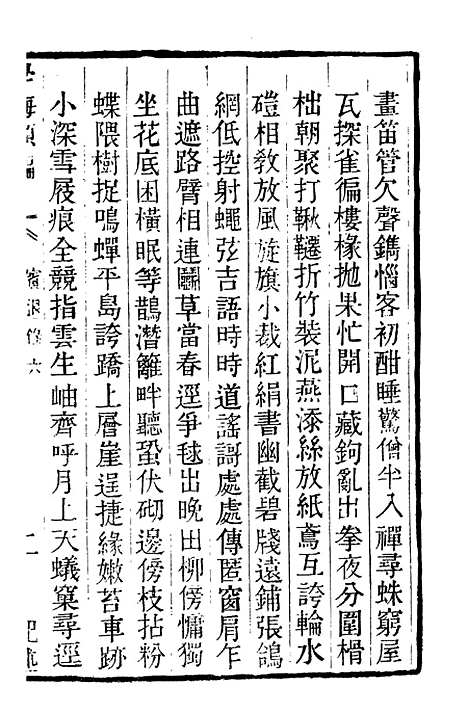 畫笛管欠聲鐫惱客初酣睡驚僧半入禪尋蛛窮屋
瓦探雀徧樓椽抛果忙開口藏鉤亂出拳夜分圍榾
柮朝聚打鞦韆折竹裝泥燕添絲放紙鳶互誇輪水
磑相敎放風旋旗小裁紅絹書幽截碧牋遠鋪張鴿
網低控射蠅弦吉語時時道謠謌處處傳匿窗肩乍
曲遮路臂相連鬭草當春逕爭毬出晩田柳傍慵獨
坐花底困橫眠等鵲潛籬畔聽蛩伏砌邊傍枝拈粉
蝶隈樹捉鳴蟬平島誇蹻上層崖逞捷緣嫩苔車跡
小深雪屐痕全競指雲生岫齊呼月上天蟻窠尋逕
學海類編
賓退錄六